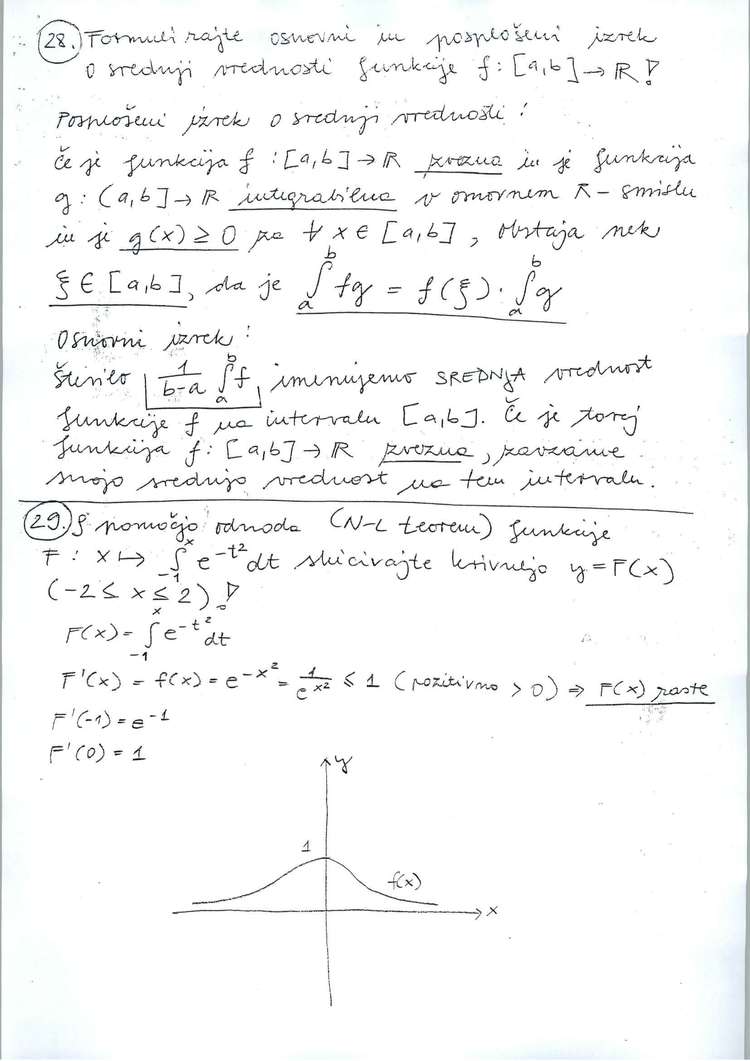 28. Formulirajte osnovni in posplošeni izrek
o srednji vrednosti funkcije f: [a,b] → ℝ !
Posplošeni izrek o srednji vrednosti:
Če je funkcija f : [a,b] → ℝ zvezna in je funkcija
g: (a,b] → ℝ integrabilna v osnovnem R-smislu
in je g(x) ≥ 0 za ∀ x ∈ [a,b], obstaja nek
ξ ∈ [a,b], da je ∫_a^b fg = f(ξ) · ∫_a^b g
Osnovni izrek:
Število 1/(b-a) ∫_a^b f, imenujemo SREDNJA vrednost
funkcije f na intervalu [a,b]. Če je torej
funkcija f: [a,b] → ℝ zvezna, zavzame
svojo srednjo vrednost na tem intervalu.
29. S pomočjo odvoda (N-L teorem) funkcije
F: x ↦ ∫_{-1}^x e^{-t²} dt skicirajte krivuljo y = F(x)
(-2 ≤ x ≤ 2) !
F(x) = ∫_{-1}^x e^{-t²} dt
F'(x) = f(x) = e^{-x²} = 1/e^{x²} ≤ 1 (pozitivno > 0) ⇒ F(x) raste
F'(-1) = e^{-1}
F'(0) = 1
y
1
f(x)
x